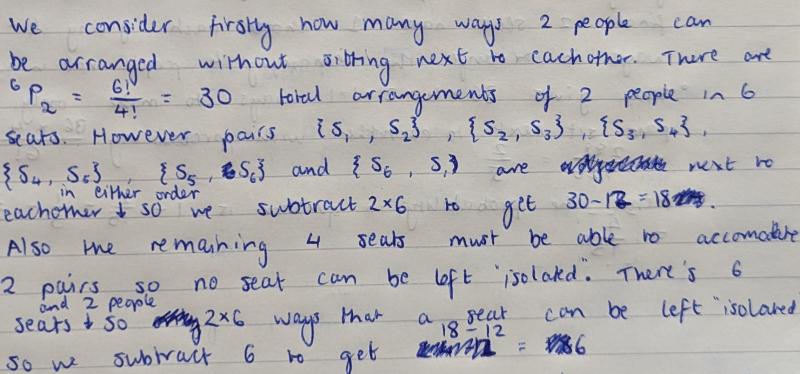 We consider firstly how many ways 2 people can
be arranged without sitting next to eachother. There are
⁶P₂ = 6!/4! = 30 total arrangements of 2 people in 6
seats. However pairs {S₁, S₂}, {S₂, S₃}, {S₃, S₄},
{S₄, S₅}, {S₅, S₆} and {S₆, S₁} are next to
in either order
eachother ↓ so we subtract 2×6 to get 30-12=18.
Also the remaining 4 seats must be able to accomodate
2 pairs so no seat can be left "isolated". There's 6
and 2 people
seats ↓ so 2×6 ways that a seat can be left "isolated
18-12
so we subtract 6 to get = 6